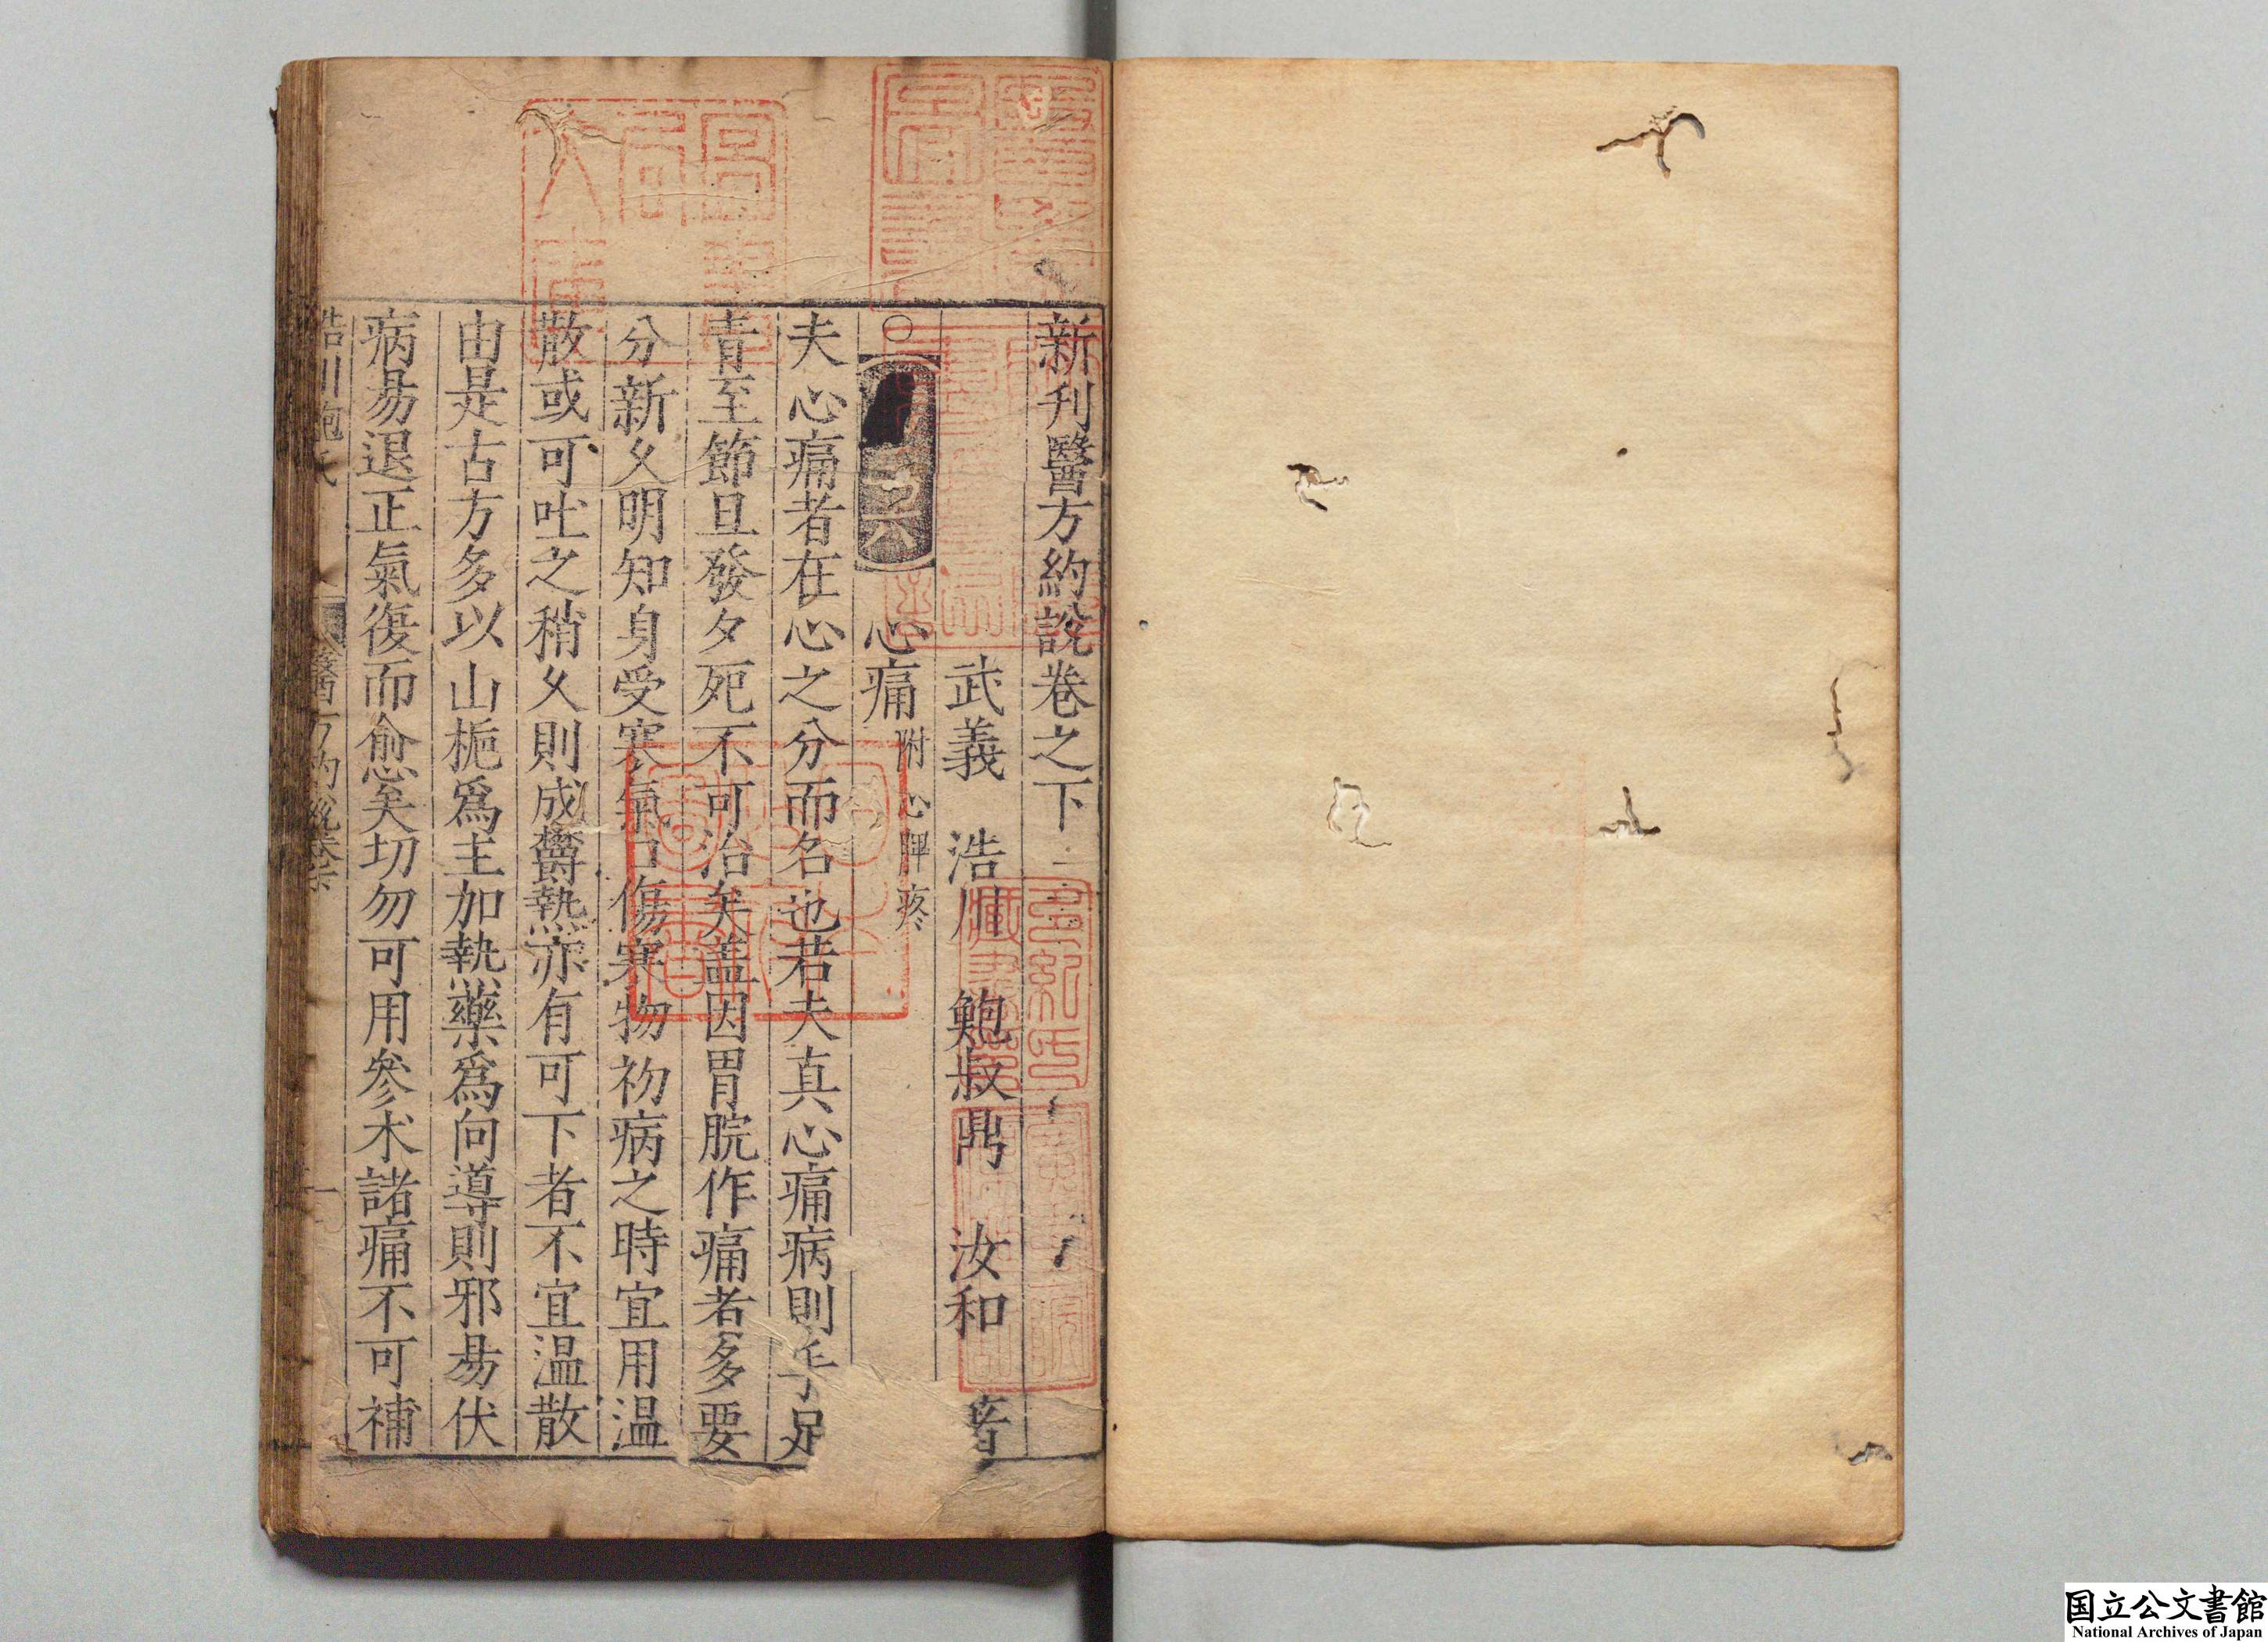 新刋醫方約說卷之下
武義 浩川 鮑叔鼎 汝和 著
○ 六 心痛 附心脾疼
夫心痛者在心之分而名也若夫真心痛病則手足
青至節旦發夕死不可治矣蓋因胃脘作痛者多要
分新久明知身受寒氣口傷寒物初病之時宜用温
散或可吐之稍久則成欝熱亦有可下者不宜温散
由是古方多以山梔爲主加熱藥爲向導則邪易伏
病易退正氣復而愈矣切勿可用參术諸痛不可補
浩川鮑氏 醫方約說卷下 一
多紀氏藏書印
国立公文書館
National Archives of Japan